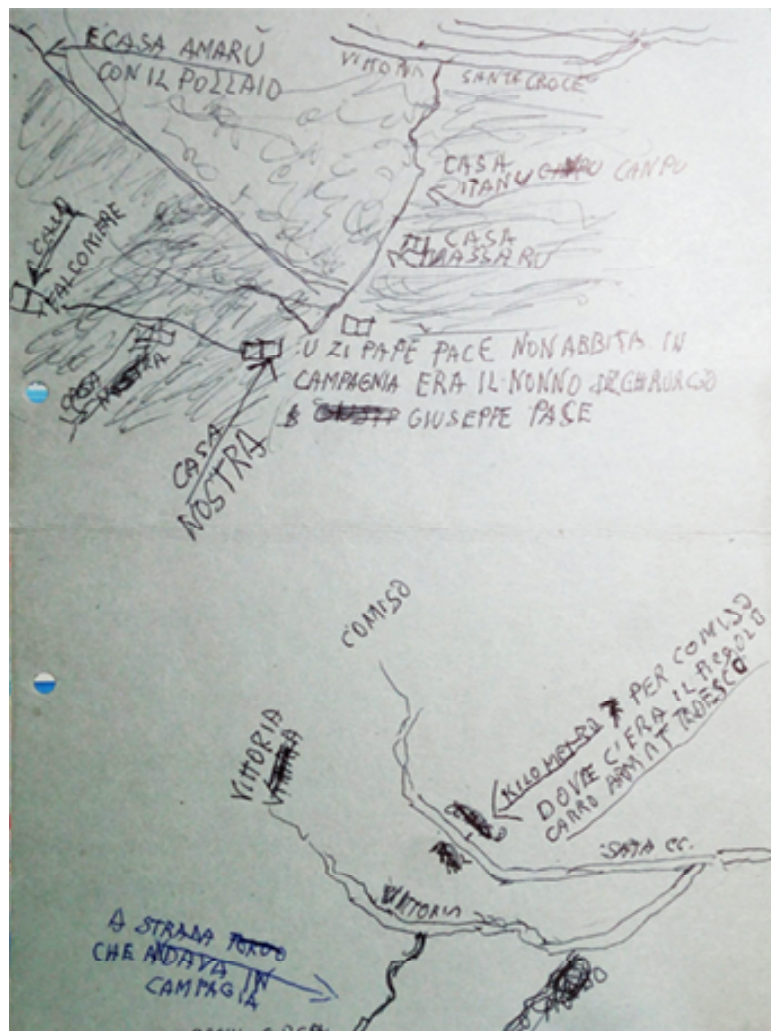 E CASA AMARÙ
CON IL POLLAIO
VITTORIA SANTE CROCE
CASA
TANU CANPU
CASA
MASSARU
FALCONIERE
U ZI PAPE PACE NON ABBITA IN
CAMPAGNIA ERA IL NONNO DE CHIRURGO
GIUSEPPE PACE
CASA
NOSTRA
COMISO
VITTORIA
KILOMETRO 7 PER COMISO
DOVE C'ERA IL PICCOLO
CARRO ARMAT TEDESCO
SATA CC.
VITTORIA
A STRADA
CHE ADAVA IN
CAMPAGIA